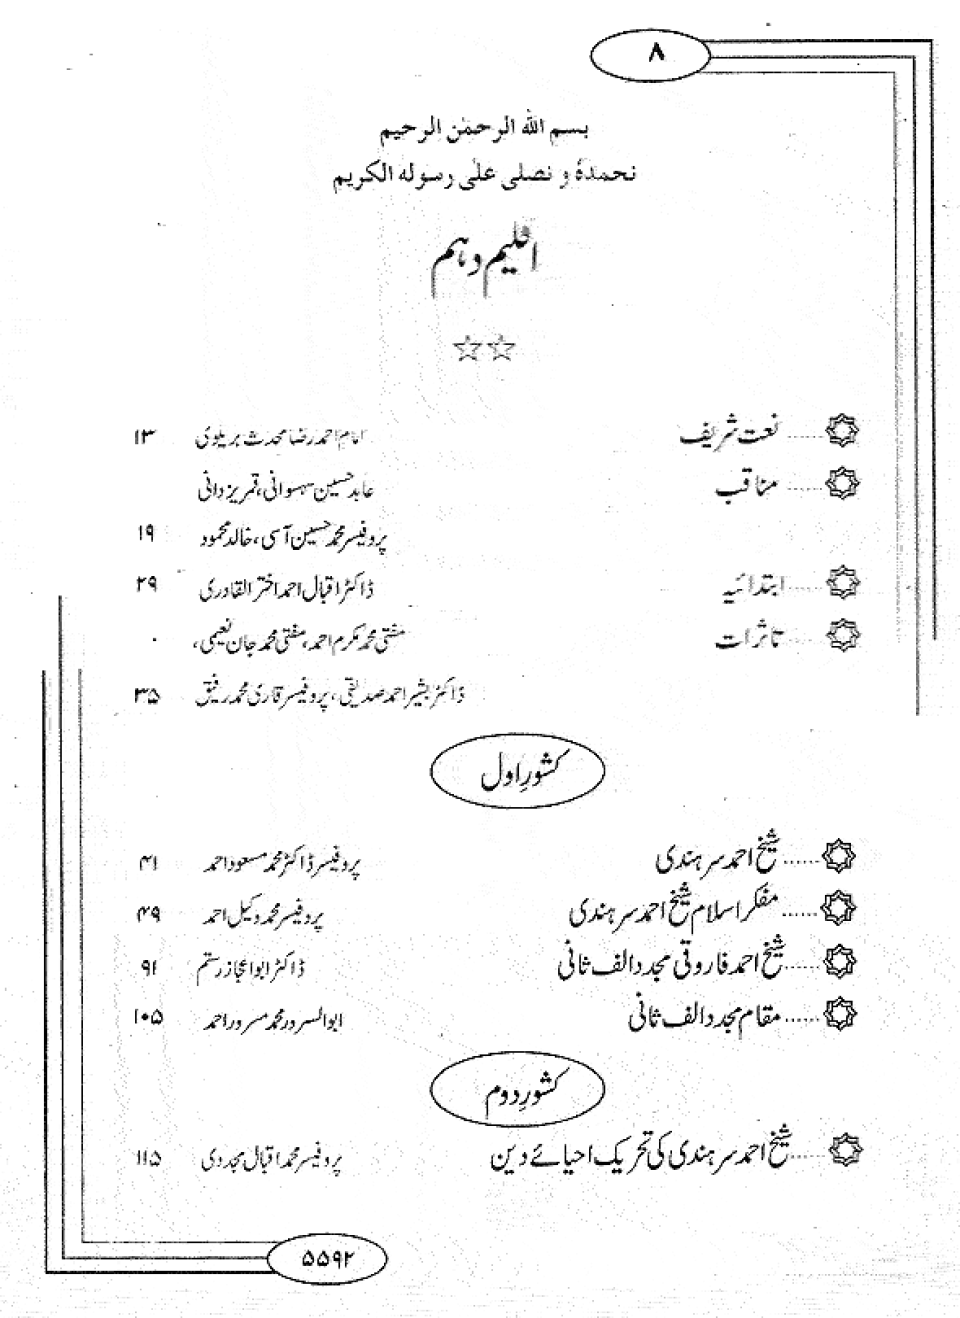 ۸
بسم الله الرحمٰن الرحیم
نحمدہٗ و نصلی علیٰ رسولہ الکریم
اقلیم دہم
☆☆
نعت شریف ...... امام احمد رضا محدث بریلوی ۱۳
مناقب ...... عابد حسین سہسوانی، قمر یزدانی
پروفیسر محمد حسین آسی، خالد محمود ۱۹
ابتدائیہ ...... ڈاکٹر اقبال احمد اختر القادری ۲۹
تاثرات ...... مفتی محمد مکرم احمد، مفتی محمد جان نعیمی،
ڈاکٹر بشیر احمد صدیقی، پروفیسر قاری محمد رفیق ۳۵
کشورِ اول
شیخ احمد سرہندی ...... پروفیسر ڈاکٹر محمد مسعود احمد ۴۱
مفکر اسلام شیخ احمد سرہندی ...... پروفیسر محمد وکیل احمد ۴۹
شیخ احمد فاروقی مجدد الف ثانی ...... ڈاکٹر ابو اعجاز رستم ۹۱
مقام مجدد الف ثانی ...... ابوالسرور محمد مسرور احمد ۱۰۵
کشورِ دوم
شیخ احمد سرہندی کی تحریک احیائے دین ...... پروفیسر محمد اقبال مجددی ۱۱۵
۵۵۹۲